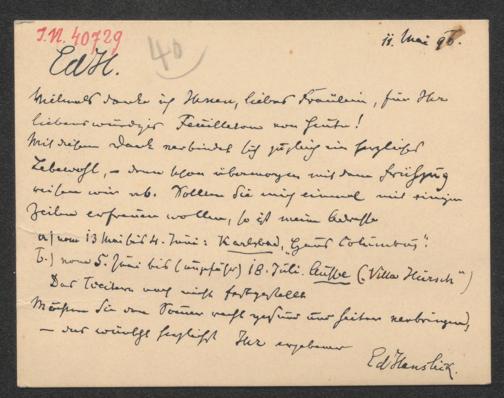 I.N. 40729
40
11. Mai 96.
EdH.
Vielmals danke ich Ihnen, liebes Fräulein, für Ihr
liebenswürdiges Feuilleton von heute!
Mit diesem Dank verbindet sich zugleich ein herzliches
Lebewohl, – denn schon übermorgen mit dem Frühzug
reisen wir ab. Sollten Sie mich einmal mit einigen
Zeilen erfreuen wollen, so ist meine Adresse
a) vom 13 Mai bis 4. Juni: Karlsbad, "Haus Columbus".
b.) vom 5. Juni bis (ungefähr) 18. Juli. Aussee ("Villa Hirsch")
Das Weitere noch nicht festgestellt
Möchten Sie den Sommer recht gesund und heiter verbringen,
– das wünscht herzlichst Ihr ergebener
EdHanslick.